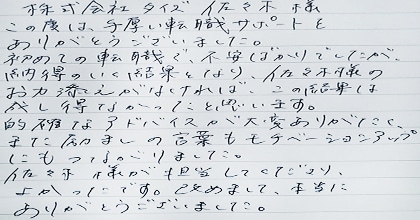 株式会社タイズ 佐々木 様
この度は、手厚い転職サポートを
ありがとうございました。
初めての転職で不安ばかりでしたが、
納得のいく結果となり、佐々木様の
お力添えがなければ、この結果は
成し得なかったと思います。
的確なアドバイスが大変ありがたく、
また励ましの言葉もモチベーションアップ
にもつながりました。
佐々木様が担当してくださり、
よかったです。改めまして、本当に
ありがとうございました。